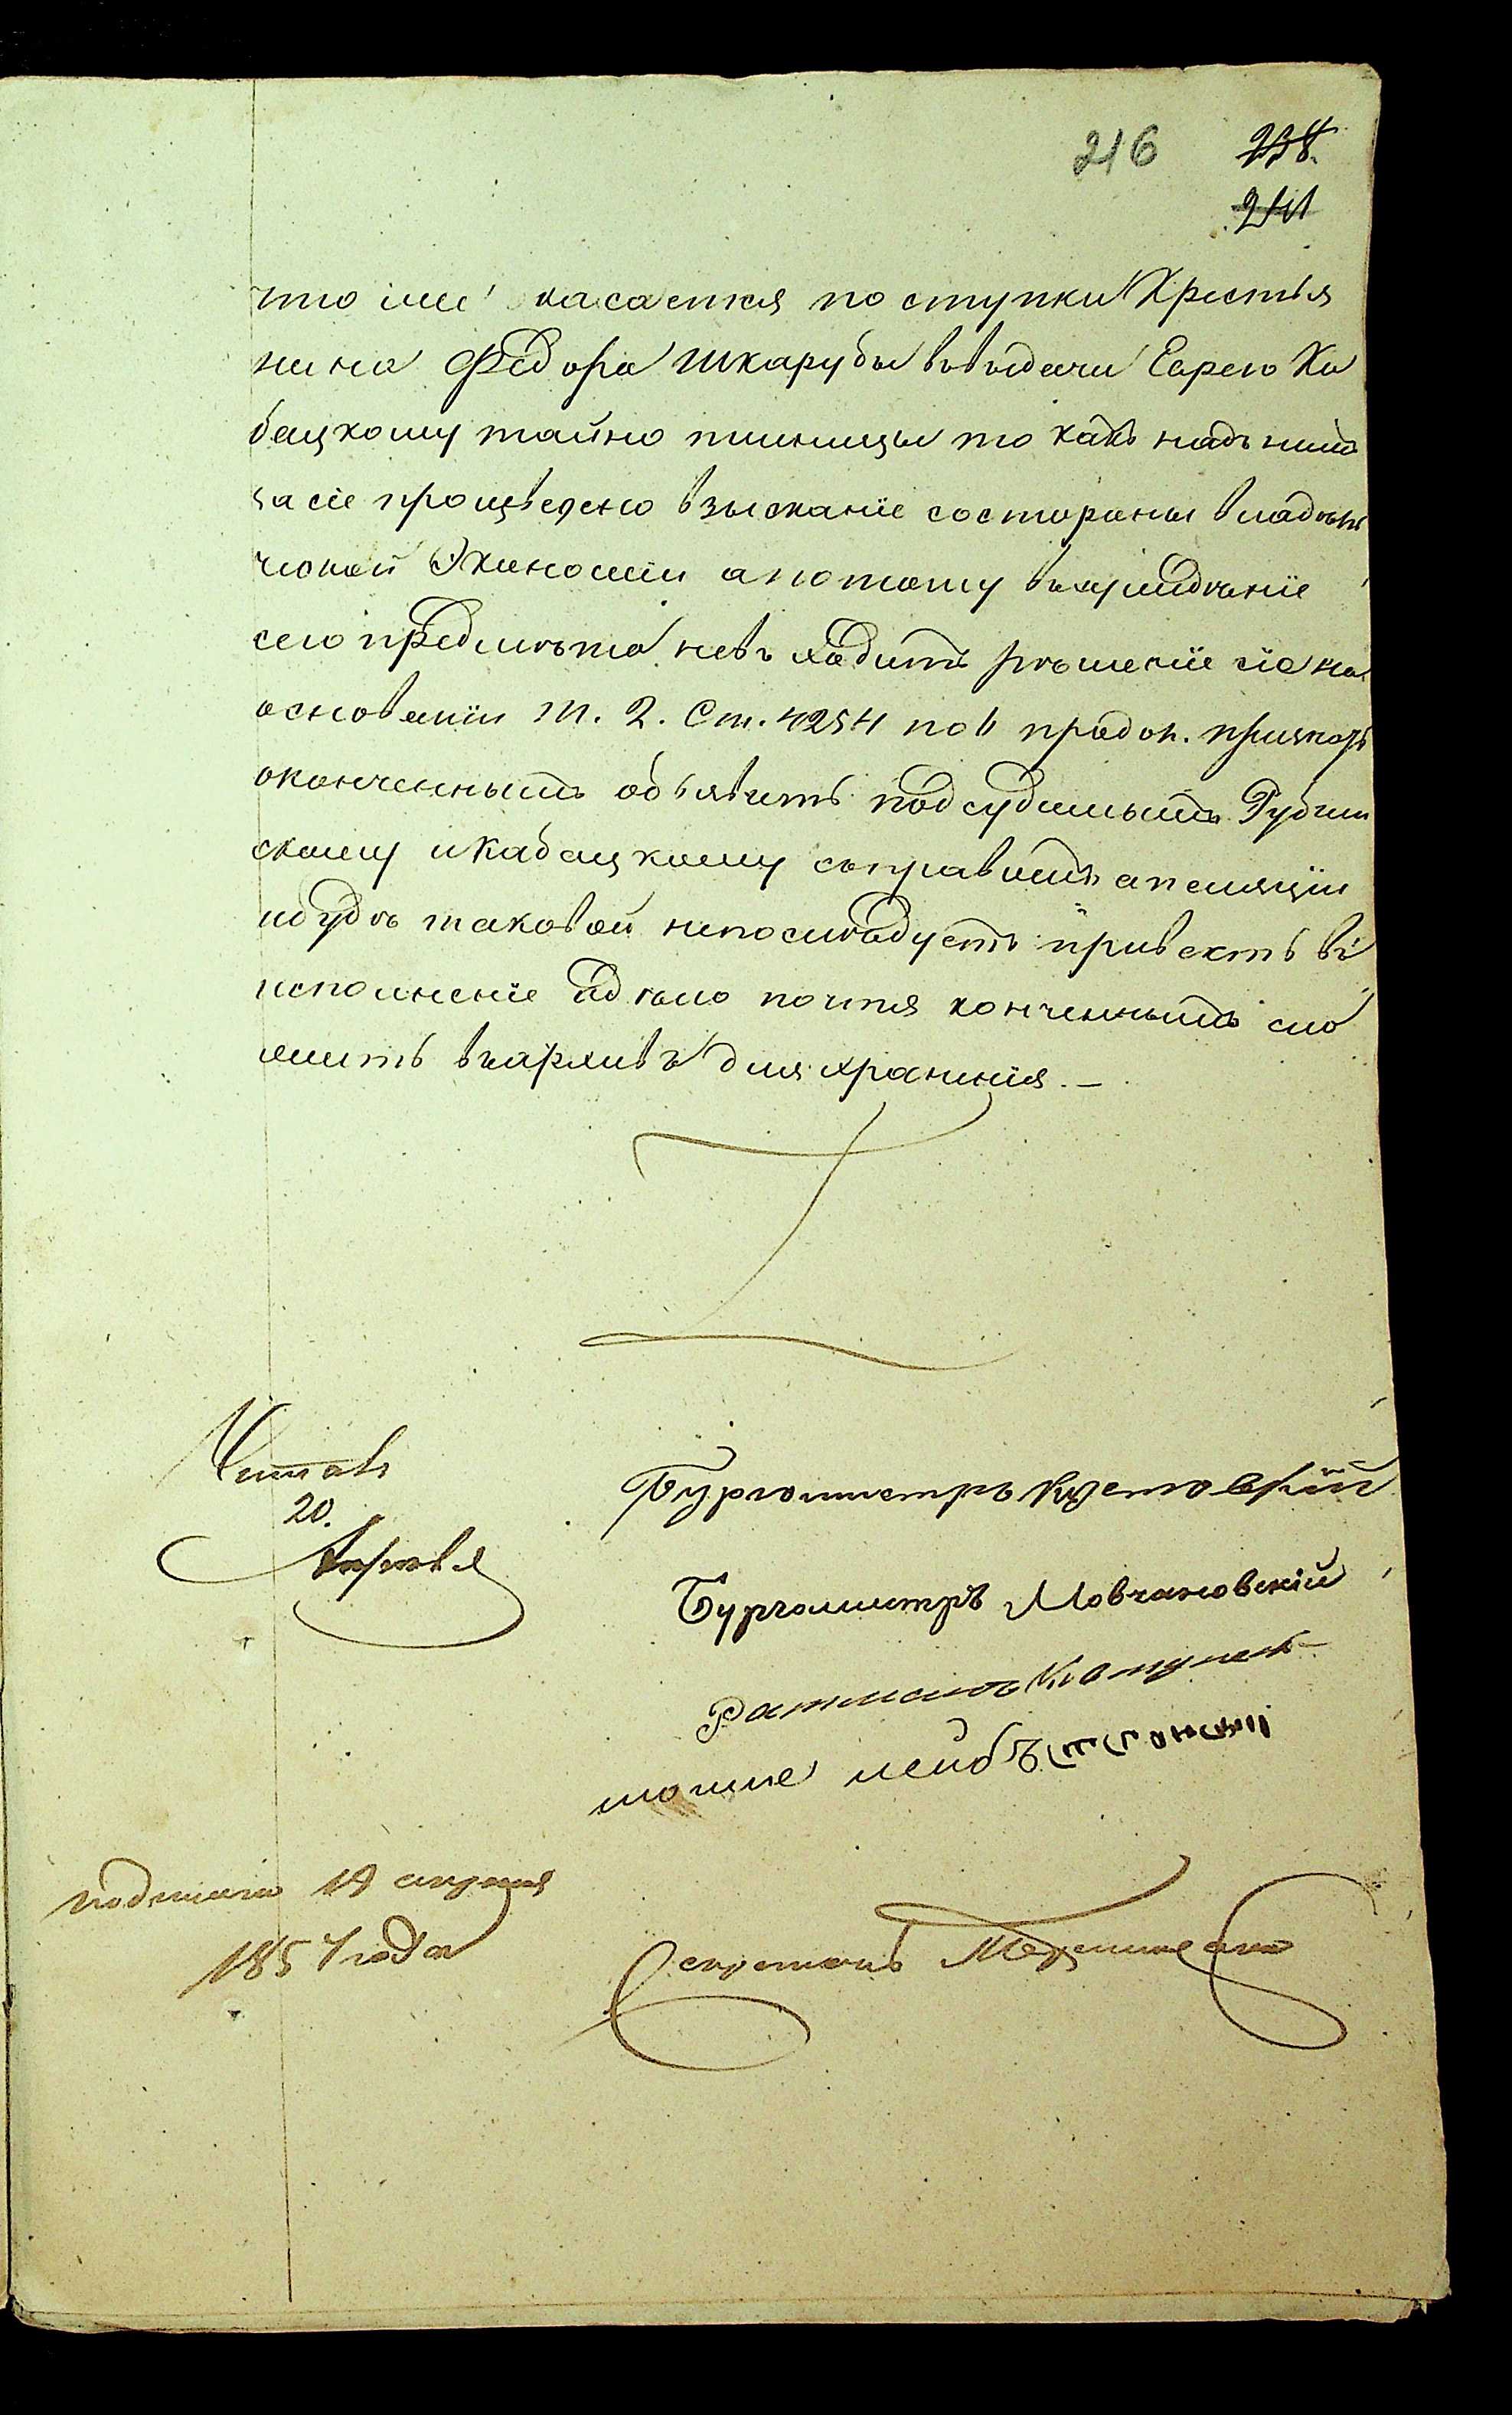 216 238.
241
что же касается поступки Хрестья
нина Федора Шкарубы въ выдачи Еврею Ка
бацкому тайно пшеницы то какъ надъ нимъ
за сіе произведено взысканіе состораны владѣль
ческой Экономіи а потому въ сужденіе
сего предмѣта невъходить рѣшеніе сіе на
основаніи Т. 2. Ст. 4254 по 6 продол.
оконченнымъ объявить подсудимымъ Рубин
скому и Кабацкому съ правомъ апеляціи
и будѣ таковой непослѣдуетъ привесть въ
исполненіе а дѣло почтя конченнымъ сло
жить въ архивъ для храненія. —
Читалъ
20.
Апрѣля
Бургомистръ
Бургомистръ Мовчановскій
Ратманъ
мошие лейбъ
Подписано 19 апреля
1857 года
Секретарь